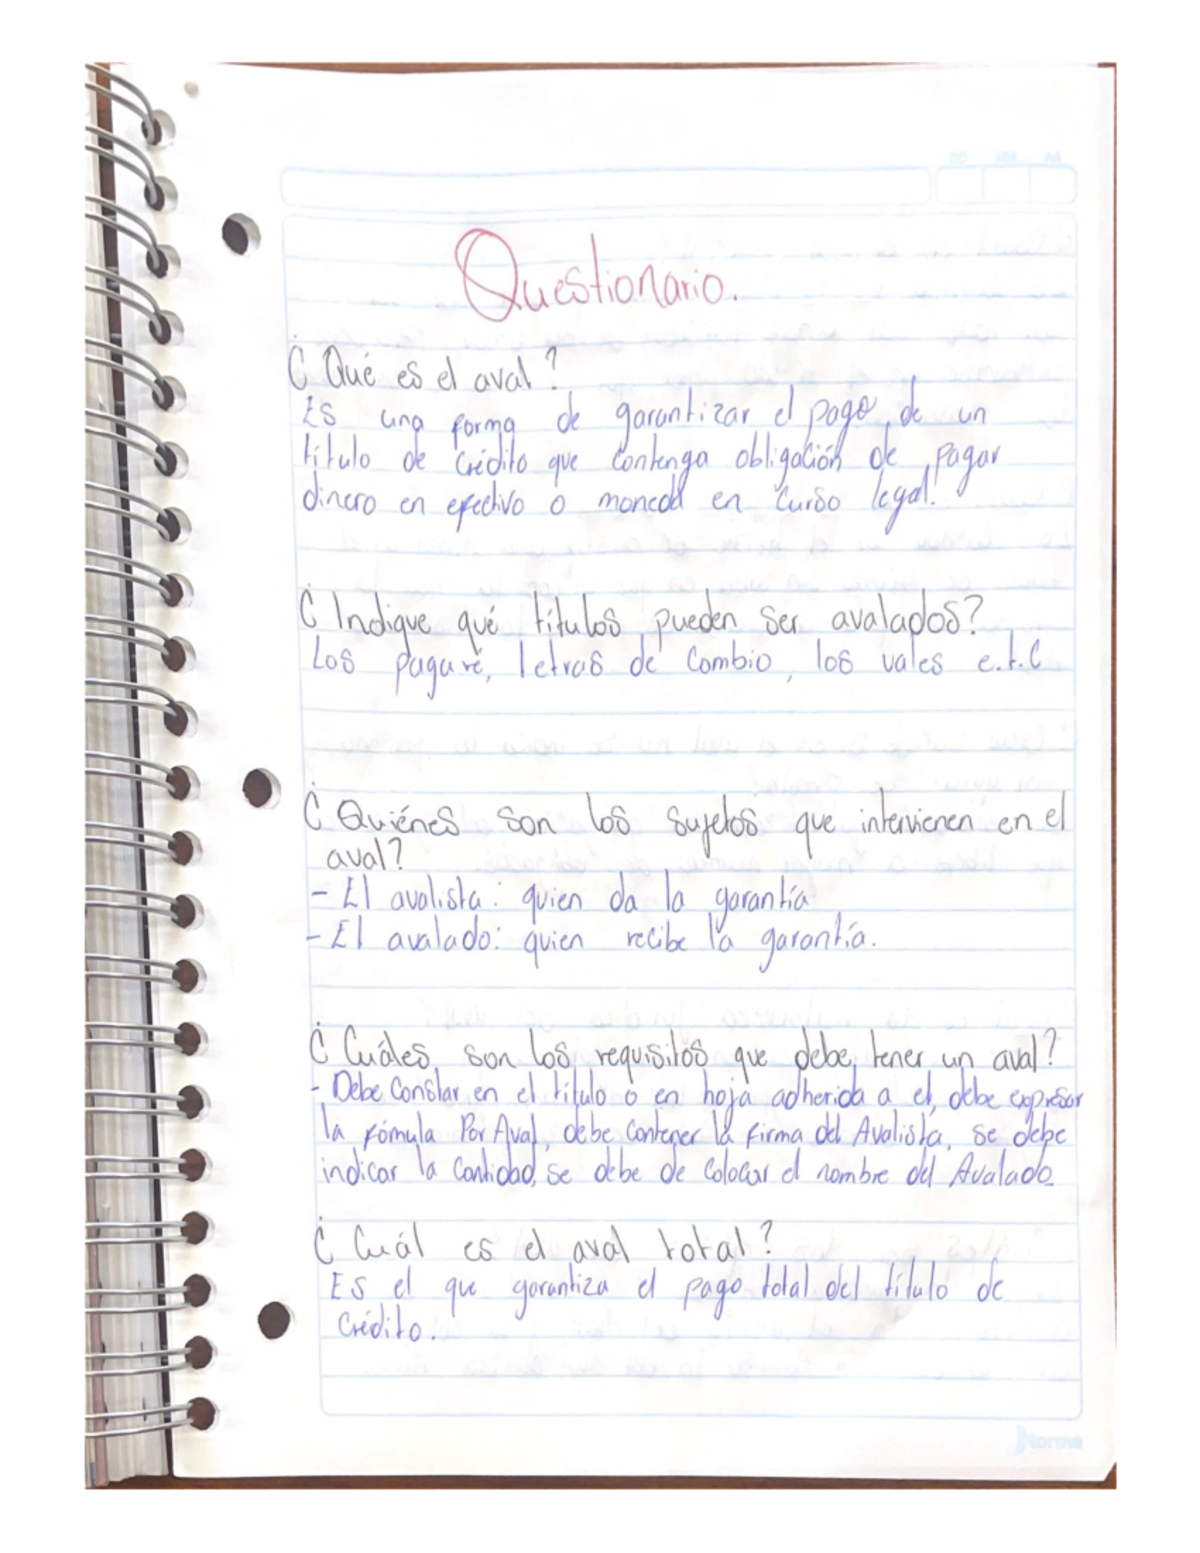 DD MM AA
Questionario.
¿Qué es el aval?
Es una forma de garantizar el pago de un
título de crédito que contenga obligación de pagar
dinero en efectivo o moneda en curso legal.
¿Indique qué títulos pueden ser avalados?
Los pagaré, letras de cambio, los vales e.t.c
¿Quiénes son los sujetos que intervienen en el
aval?
- El avalista: quien da la garantía
- El avalado: quien recibe la garantía.
¿Cuáles son los requisitos que debe tener un aval?
- Debe Constar en el título o en hoja adherida a el, debe expresar
la fómula Por Aval, debe contener la firma del Avalista, se debe
indicar la Cantidad, se debe de colocar el nombre del Avalado
¿Cuál es el aval total?
Es el que garantiza el pago total del título de
crédito.
Norma